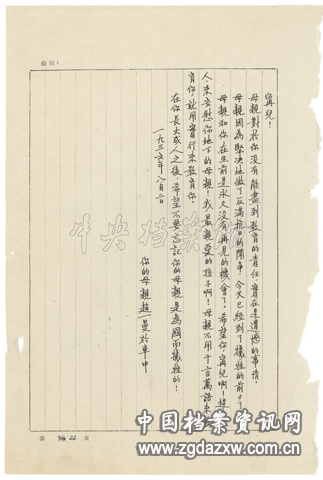 寗兒！
母親對於你沒有能盡到教育的責任，實在是遺憾的事情。
母親因為堅決地做了反滿抗日的鬥爭，今天已經到了犧牲的前夕了
母親和你在生前是永久沒有再見的機會了。希望你寗兒啊！趕
人，來安慰你地下的母親！我最親愛的孩子啊！母親不用千言萬語來
育你，就用實行來教育你。
在你長大成人之後，希望不要忘記你的母親是為國而犧牲的！
一九三六年八月二日
你的母親趙一曼於車中
中央档案
第 頁
中国档案资讯网
www.zgdazxw.com.cn